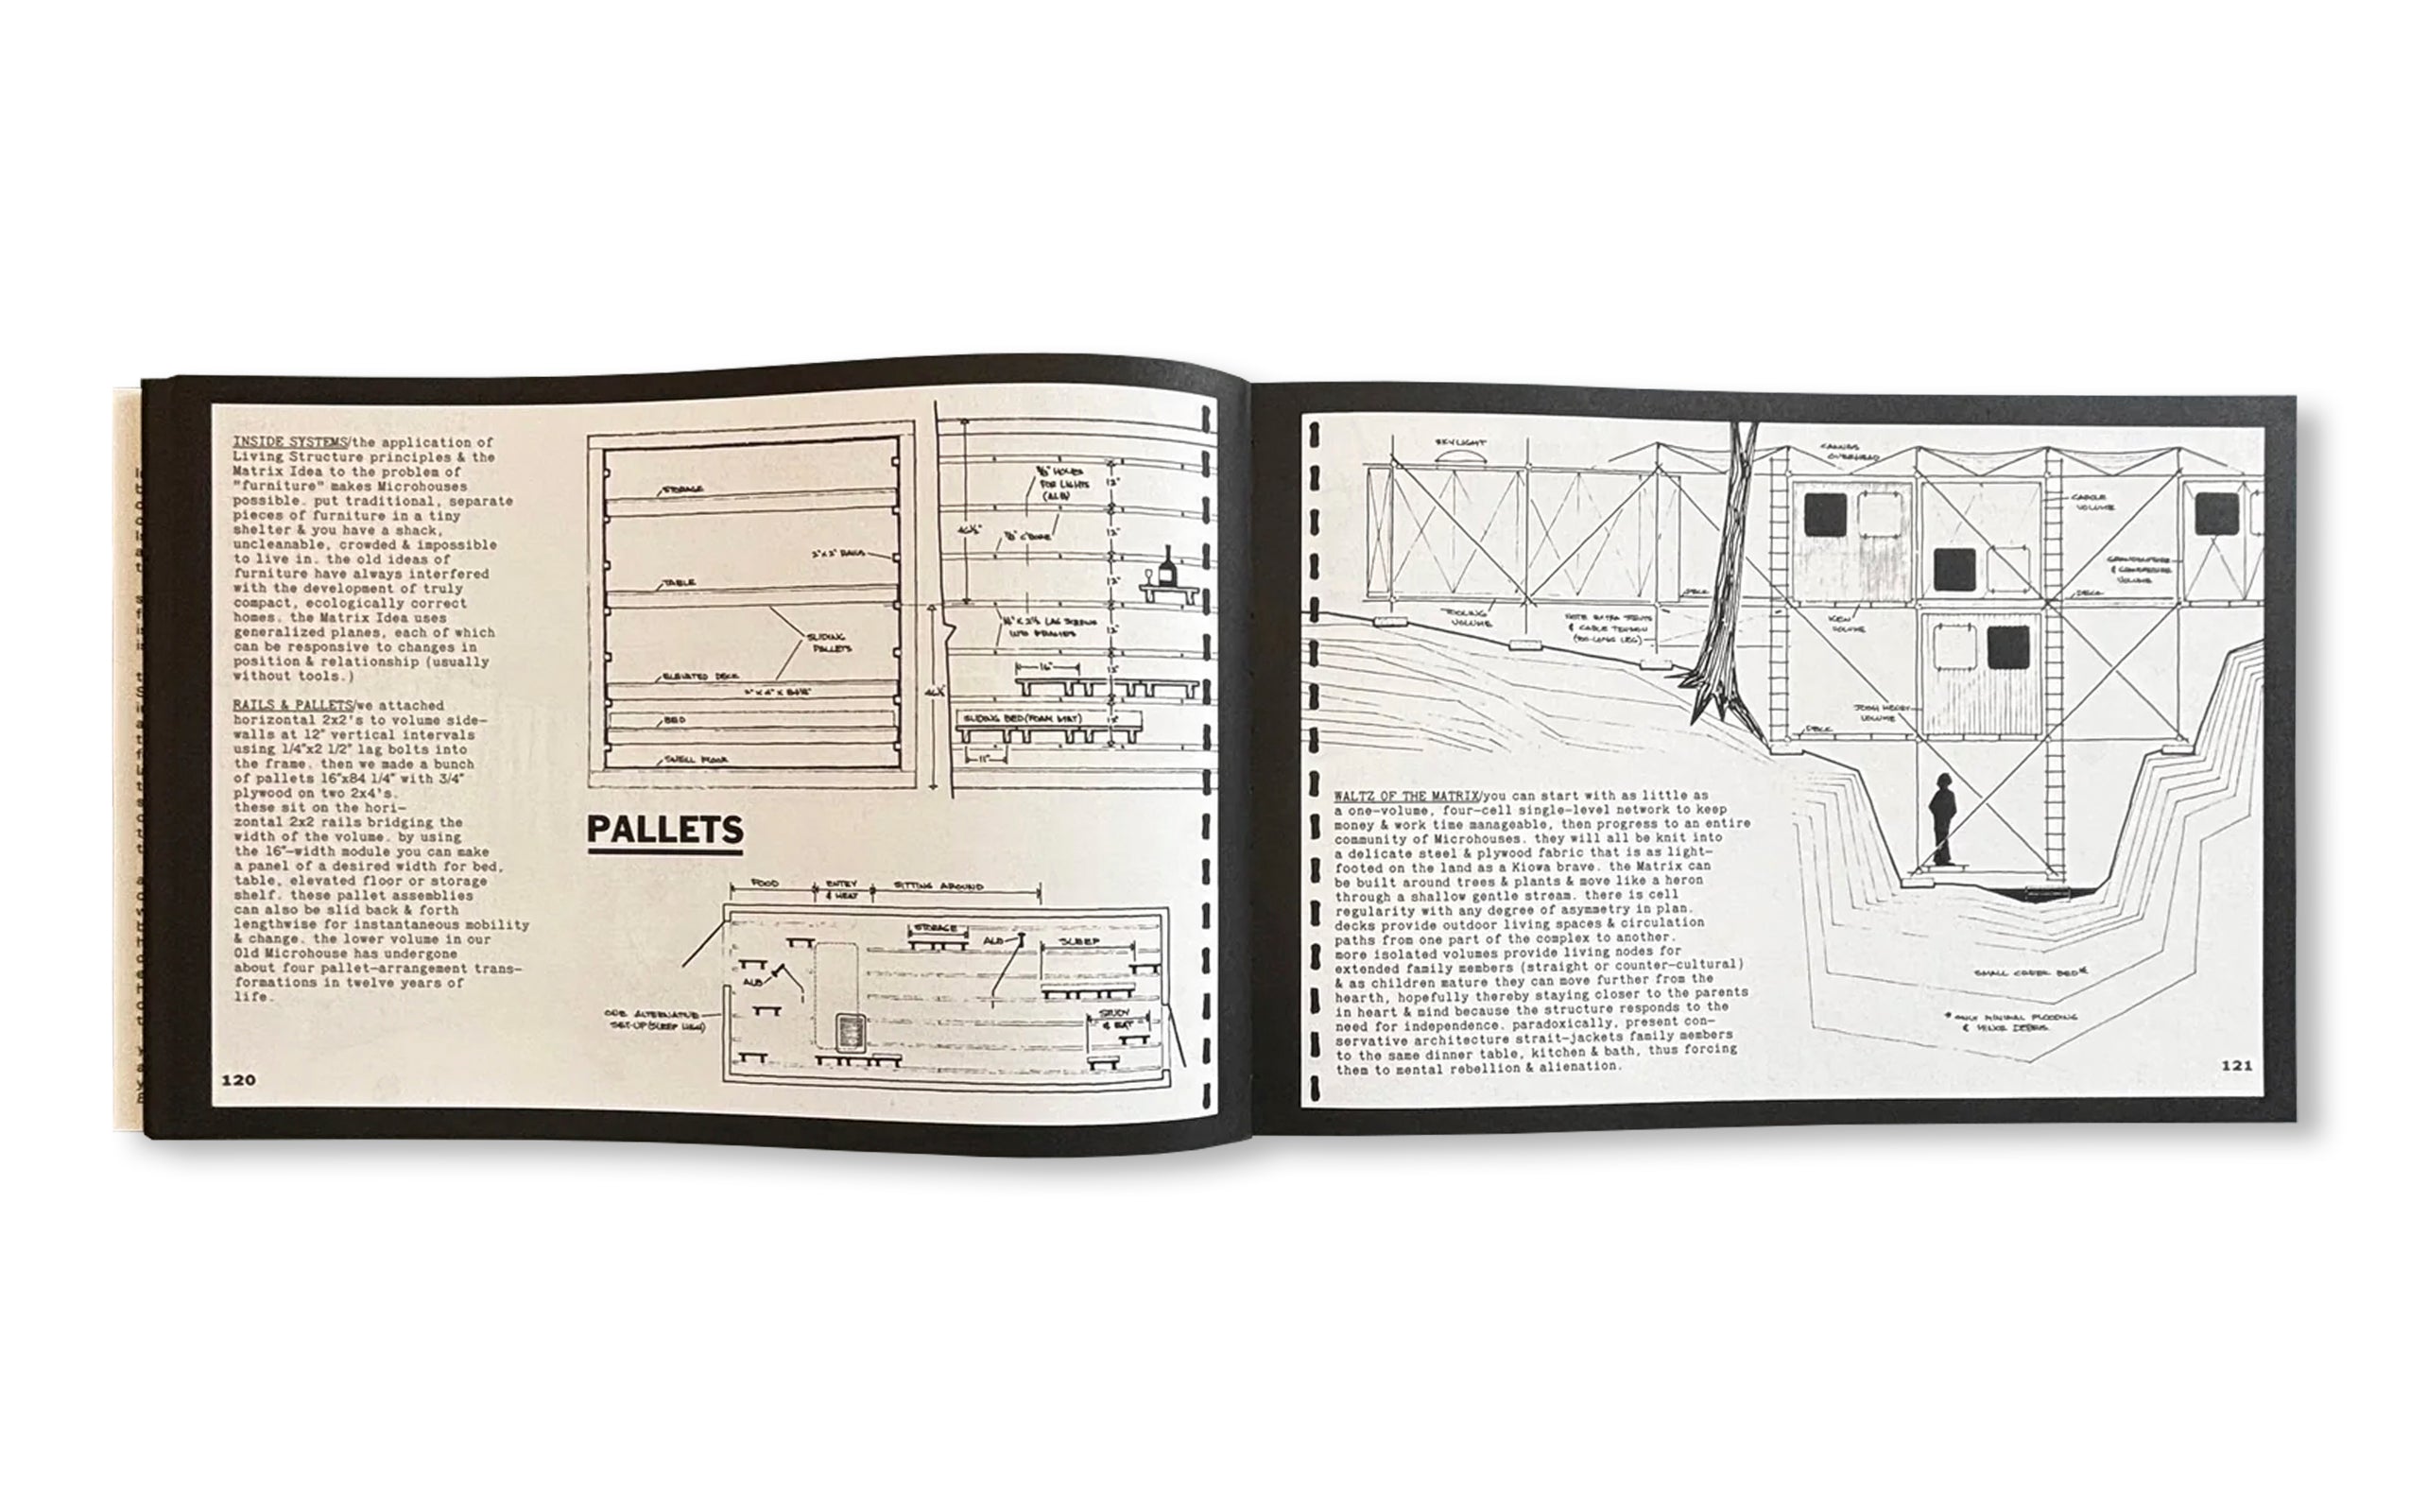 INSIDE SYSTEMS/the application of
Living Structure principles & the
Matrix Idea to the problem of
"furniture" makes Microhouses
possible. put traditional, separate
pieces of furniture in a tiny
shelter & you have a shack,
uncleanable, crowded & impossible
to live in. the old ideas of
furniture have always interfered
with the development of truly
compact, ecologically correct
homes. the Matrix Idea uses
generalized planes, each of which
can be responsive to changes in
position & relationship (usually
without tools.)
RAILS & PALLETS/we attached
horizontal 2x2's to volume side-
walls at 12" vertical intervals
using 1/4"x2 1/2" lag bolts into
the frame. then we made a bunch
of pallets 16"x84 1/4" with 3/4"
plywood on two 2x4's.
these sit on the hori-
zontal 2x2 rails bridging the
width of the volume. by using
the 16"-width module you can make
a panel of a desired width for bed,
table, elevated floor or storage
shelf. these pallet assemblies
can also be slid back & forth
lengthwise for instantaneous mobility
& change. the lower volume in our
Old Microhouse has undergone
about four pallet-arrangement trans-
formations in twelve years of
life.
120
STORAGE
2"x2" RAILS
TABLE
SLIDING
PALLETS
ELEVATED DECK
BED
SWELL FLOOR
HOLES
FOR LIGHTS
(ALB)
12"
12"
12"
12"
12"
LAG SCREWS
INTO FRAMES
16"
SLIDING BED (FOAM MAT)
11"
PALLETS
FOOD
ENTRY
& HEAT
SITTING AROUND
STORAGE
ALB
SLEEP
ALB
STUDY
& EAT
ONE ALTERNATIVE
SET-UP (SLEEP VIEW)
SKYLIGHT
CANVAS
OVERHEAD
CABLE
VOLUME
GRANDMOTHER
& GRANDFATHER
VOLUME
DECK
DECK
TOOLING
VOLUME
NOTE EXTRA STRUTS
& CABLE TENSION
KEN
VOLUME
JOSH HENRY
VOLUME
DECK
SMALL CREEK BED*
* ONLY MINIMAL FLOODING
& MINOR DEBRIS
WALTZ OF THE MATRIX/you can start with as little as
a one-volume, four-cell single-level network to keep
money & work time manageable, then progress to an entire
community of Microhouses. they will all be knit into
a delicate steel & plywood fabric that is as light-
footed on the land as a Kiowa brave. the Matrix can
be built around trees & plants & move like a heron
through a shallow gentle stream. there is cell
regularity with any degree of asymmetry in plan.
decks provide outdoor living spaces & circulation
paths from one part of the complex to another.
more isolated volumes provide living nodes for
extended family members (straight or counter-cultural)
& as children mature they can move further from the
hearth, hopefully thereby staying closer to the parents
in heart & mind because the structure responds to the
need for independence. paradoxically, present con-
servative architecture strait-jackets family members
to the same dinner table, kitchen & bath, thus forcing
them to mental rebellion & alienation.
121